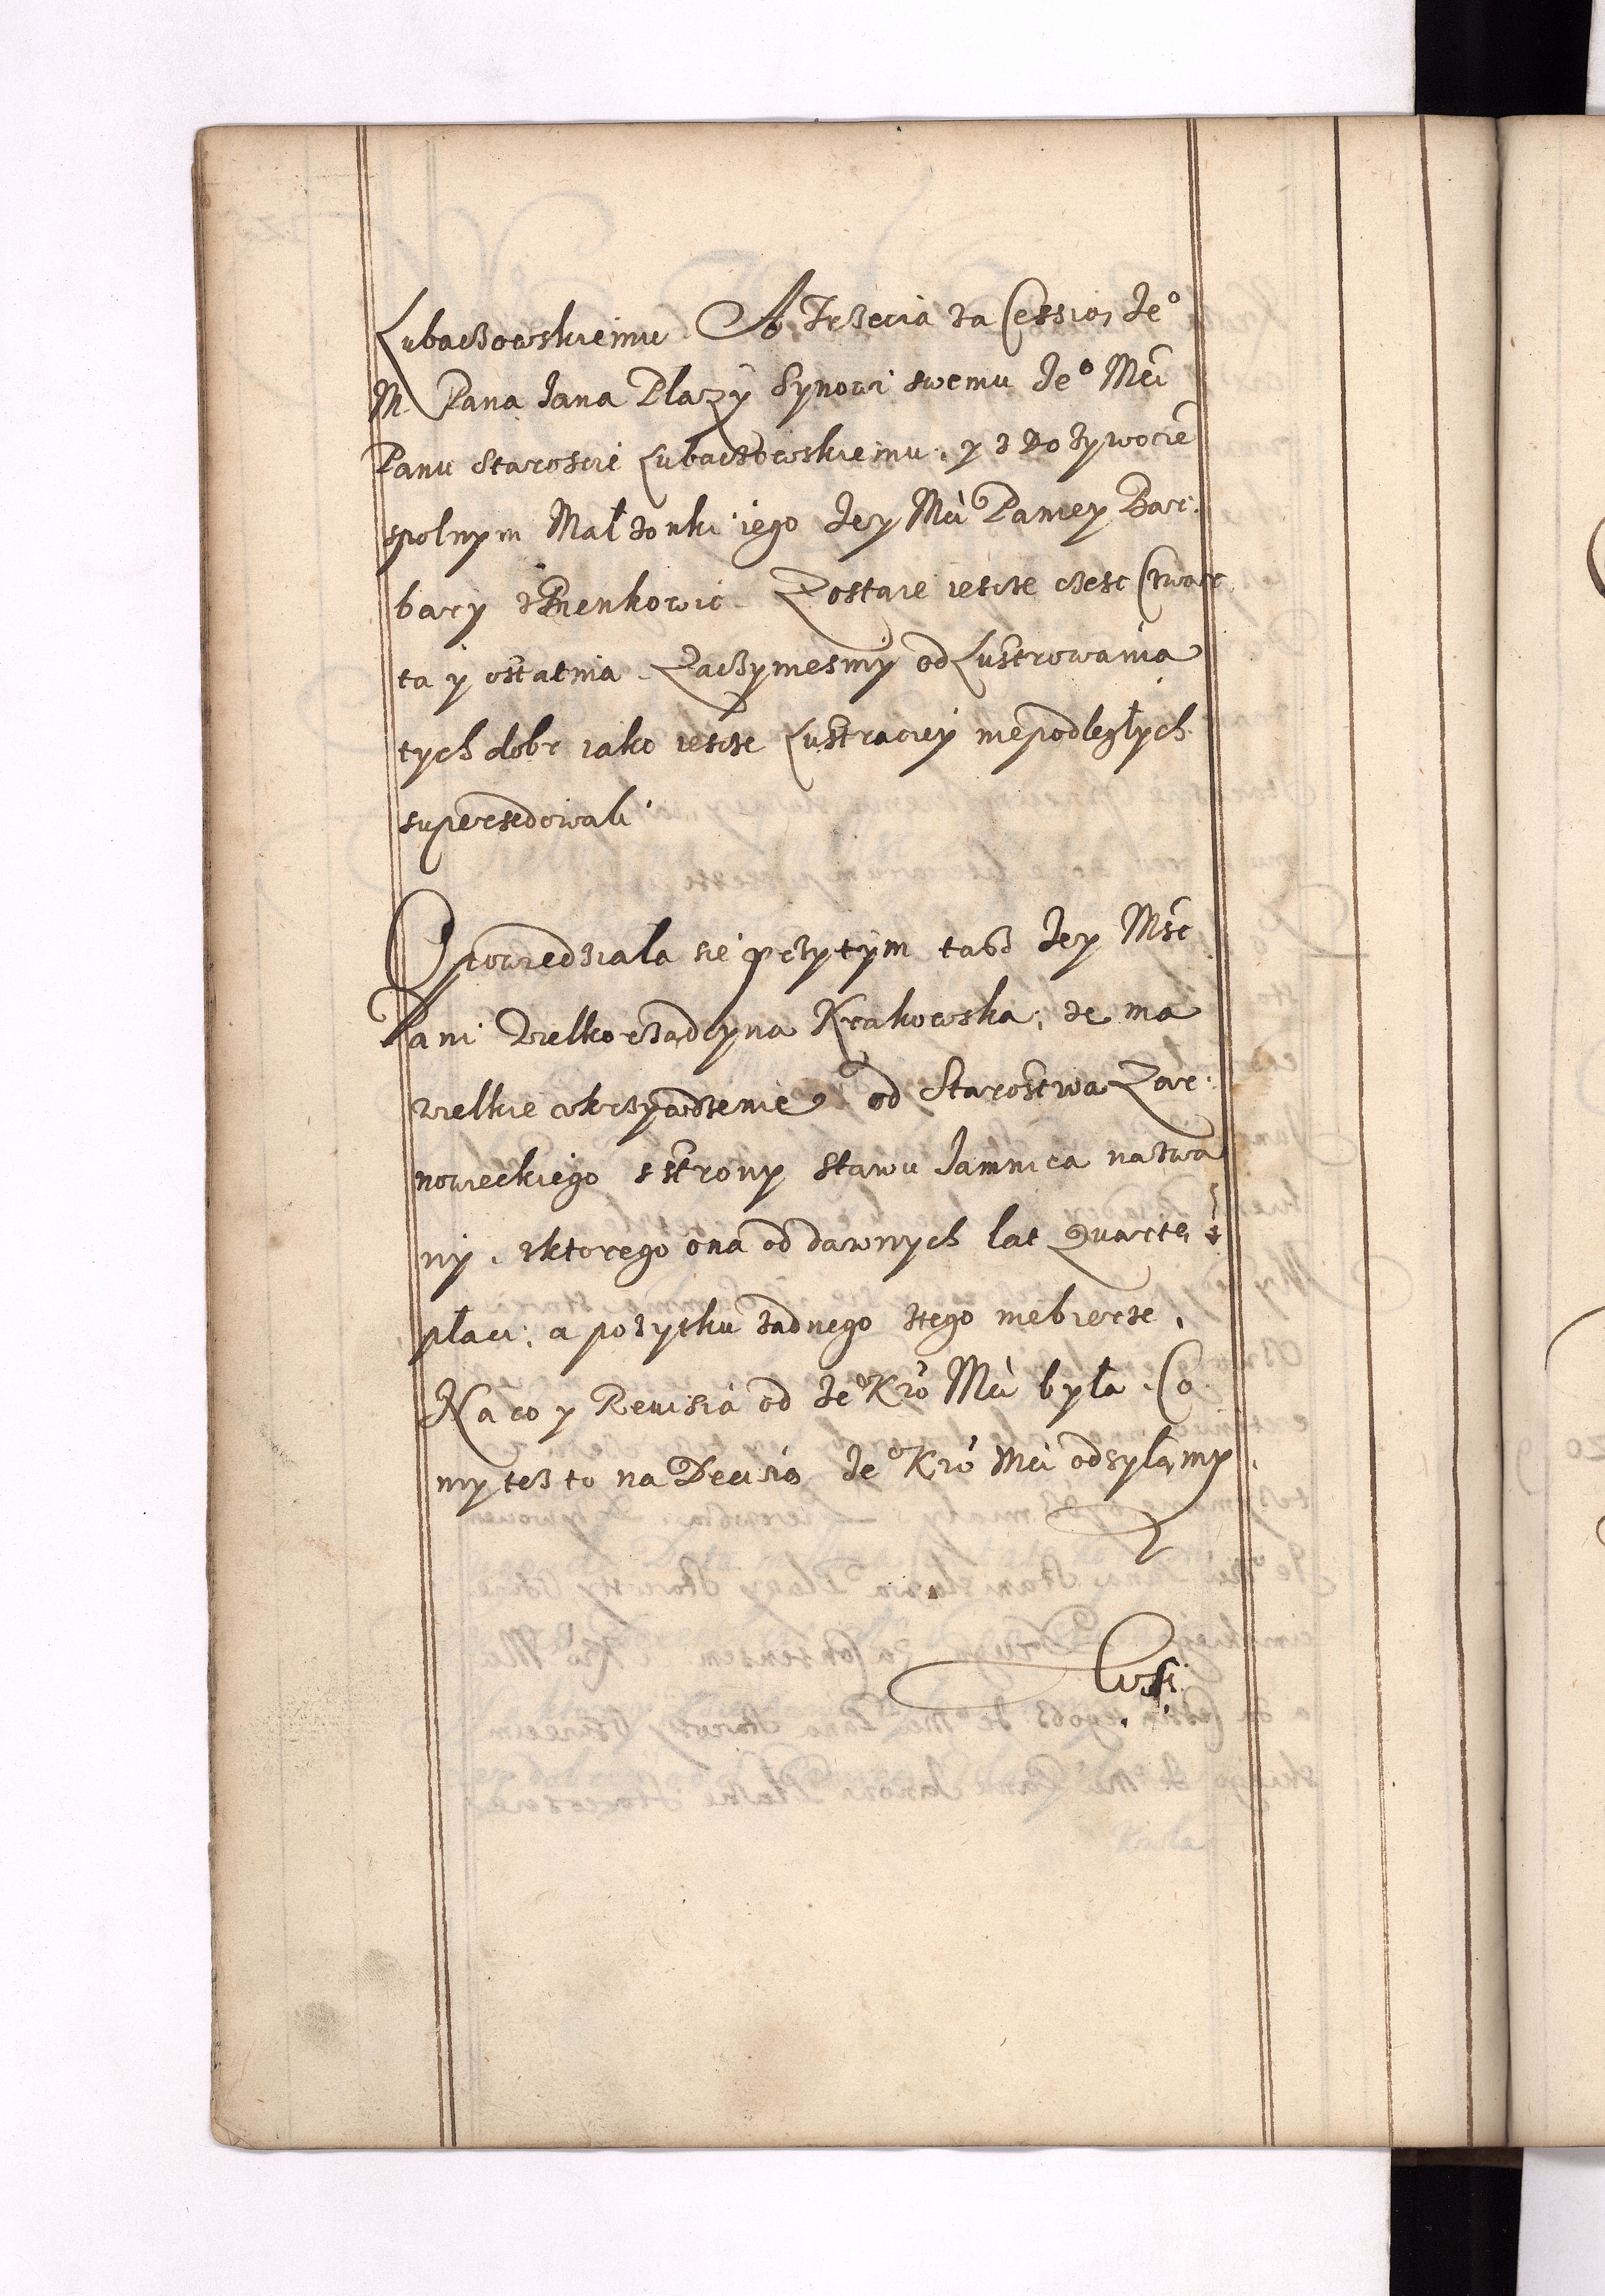 Lubaczowskiemu. A Trzecia za Cessią Jeº
M. Pana Jana Płazy Synowi swemu Jeº Mći
Panu Staroscie Lubaczowskiemu, y z Dozywocie
spolnym Małzonki iego Jey Mći Paniey Bar:
bary
Zostaie iescze czesc Czwar
ta y ostatnia. Zaczymesmy od Lustrowania
tych dobr iako iescze Lustraciey niepodległych
supersedowali

Opowiedziala sie przytym tasz Jey Mśc
Pani Wielkorządczyna Krakowska, ze ma
wielkie ukrzywdzenie od Starostwa Zar:
nowieckiego s strony stawu Jamnica nazwa
ny, z ktorego ona od dawnych lat Quartę
płaci, a pozytku zadnego ztego niebierze,
Na co y Revisia od Jeº Kro Mći była. Co
my tesz to na Decisią Jeº Kro Mći odsyłamy.